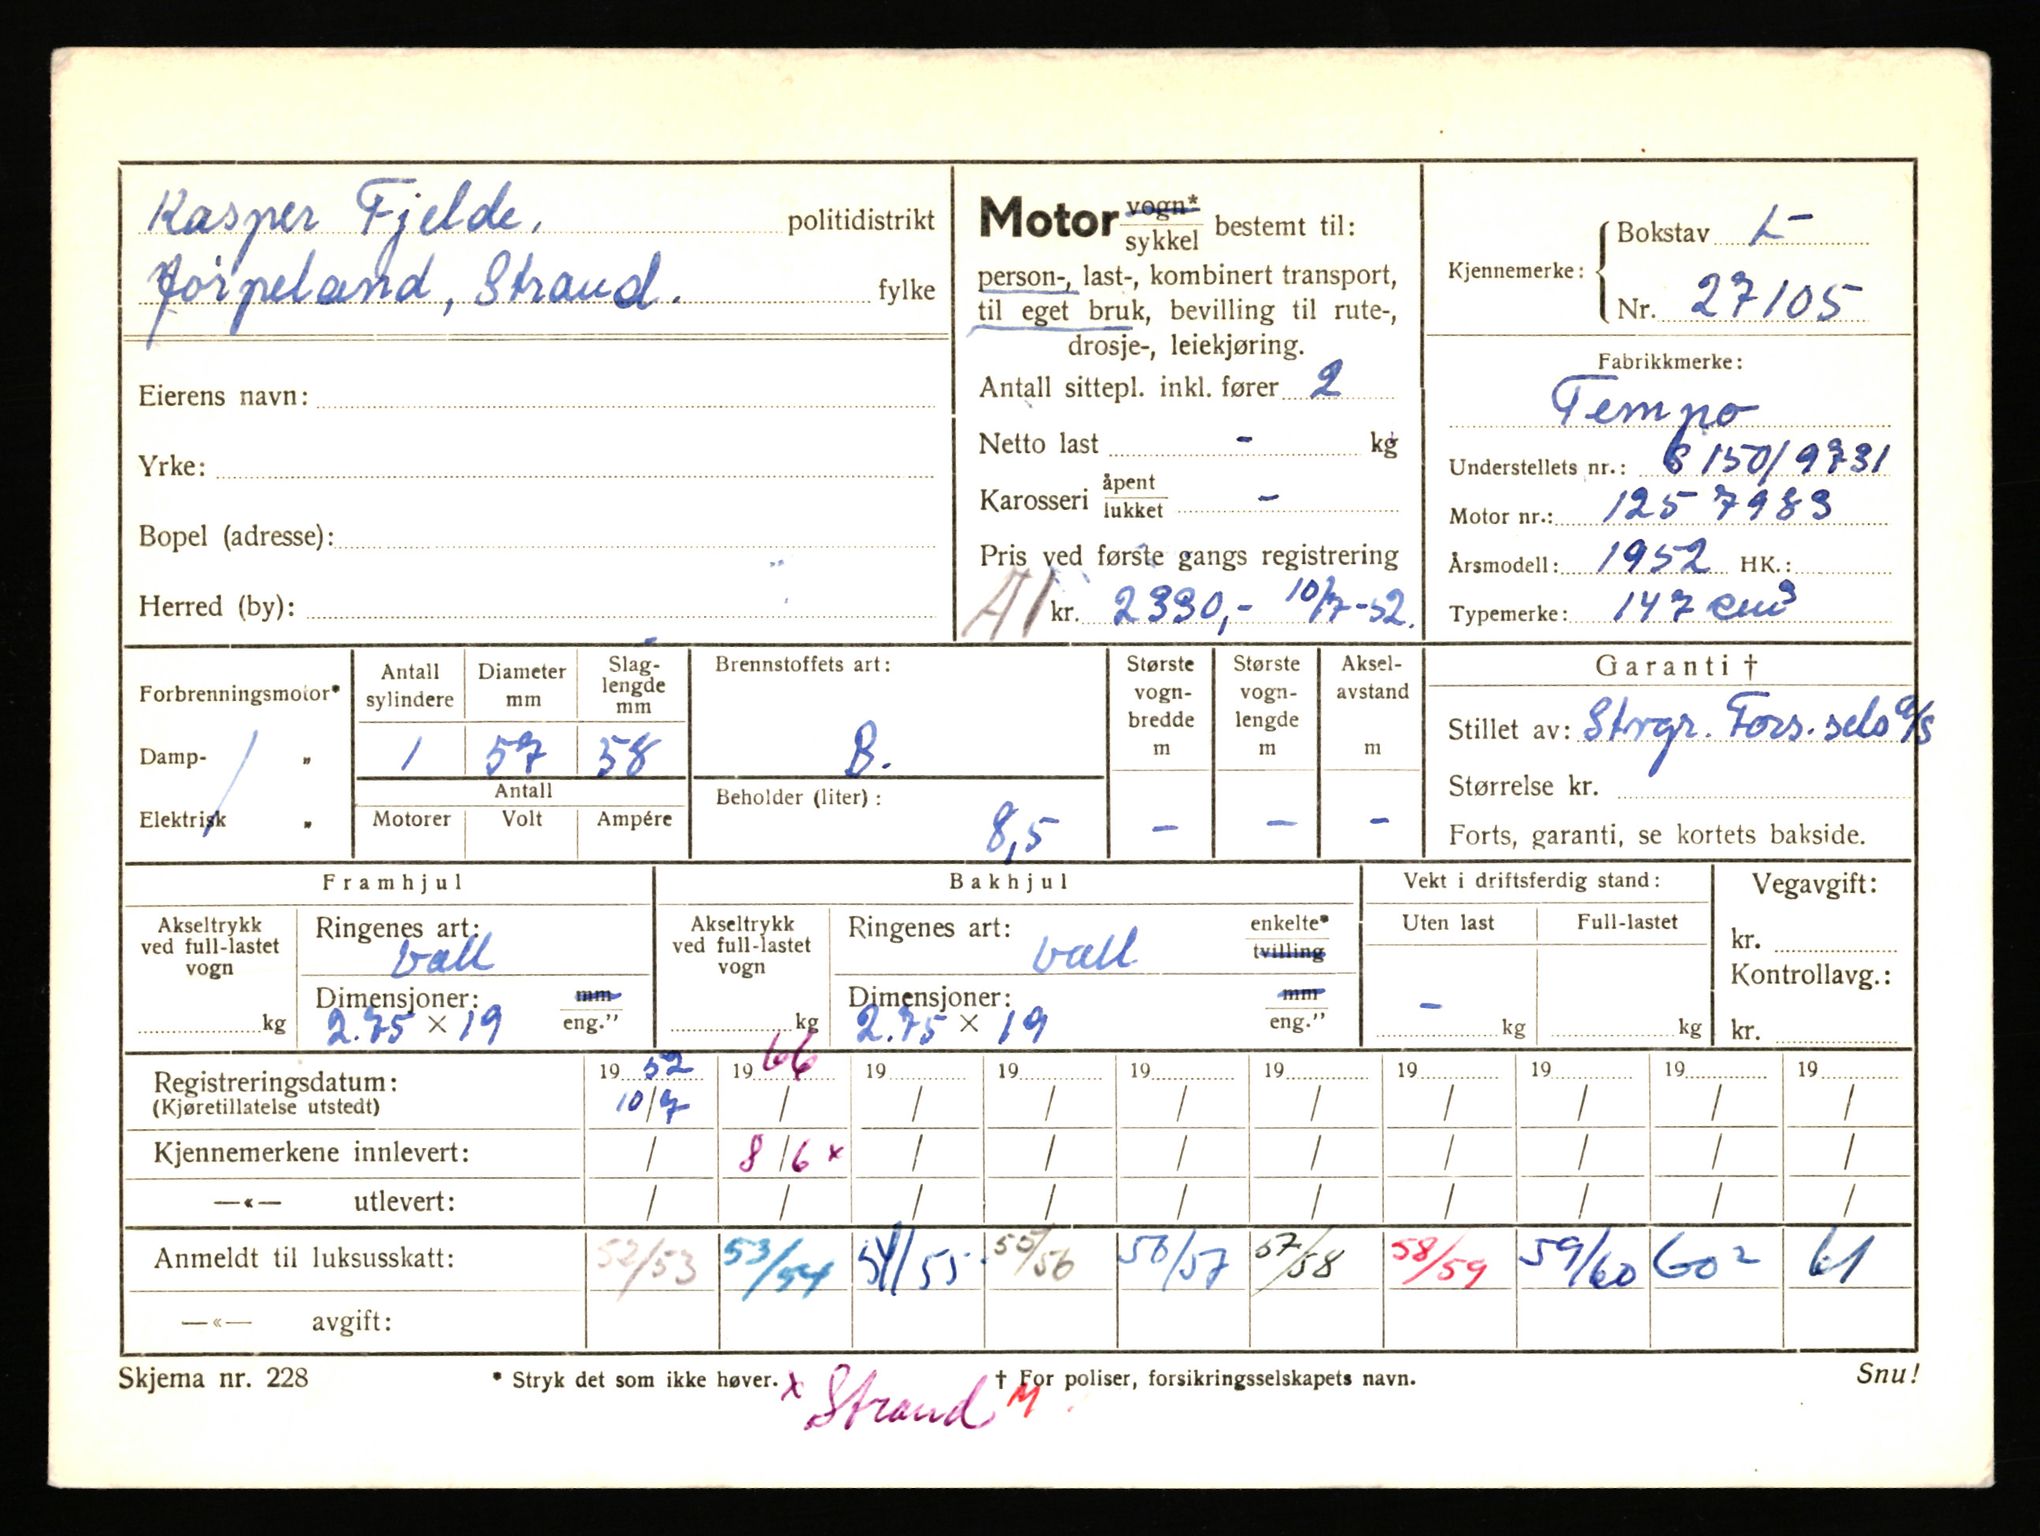 Kasper Fjelde. politidistrikt
Jørpeland, Strand. fylke
Eierens navn:
Yrke:
Bopel (adresse):
Herred (by):
Motor vogn* sykkel bestemt til:
person-, last-, kombinert transport,
til eget bruk, bevilling til rute-,
drosje-, leiekjøring.
Antall sittepl. inkl. fører 2
Netto last - kg
Karosseri åpent lukket -
Pris ved første gangs registrering
A1 kr. 2330,- 10/7-52.
Kjennemerke: Bokstav L
Nr. 27105
Fabrikkmerke:
Tempo
Understellets nr.: 150/9731
Motor nr.: 1257983
Årsmodell: 1952 HK.:
Typemerke: 147 cm³
Forbrenningsmotor*
Damp- "
Elektrisk "
Antall sylindere Diameter mm Slag-lengde mm
1 57 58
Antall
Motorer Volt Ampére
Brennstoffets art:
B.
Beholder (liter):
8,5
Største vogn-bredde m -
Største vogn-lengde m -
Aksel-avstand m -
Garanti †
Stillet av: Strgr. Fors. sels a/s
Størrelse kr.
Forts, garanti, se kortets bakside.
Framhjul
Akseltrykk ved full-lastet vogn
kg
Ringenes art:
vall
Dimensjoner: mm
2.75 × 19 eng."
Bakhjul
Akseltrykk ved full-lastet vogn
kg
Ringenes art: enkelte*
vall tvilling
Dimensjoner: mm
2.75 × 19 eng."
Vekt i driftsferdig stand:
Uten last Full-lastet
- kg kg
Vegavgift:
kr.
Kontrollavg.:
kr.
Registreringsdatum: 1952 1966 19 19 19 19 19 19 19 19
(Kjøretillatelse utstedt) 10/7 / / / / / / / / /
Kjennemerkene innlevert: / 8/6 x / / / / / / / /
—«— utlevert: / / / / / / / / / /
Anmeldt til luksusskatt: 52/53 53/54 54/55 55/56 56/57 57/58 58/59 59/60 60² 61
—«— avgift:
Skjema nr. 228 * Stryk det som ikke høver. † For poliser, forsikringsselskapets navn. Snu!
x Strand M